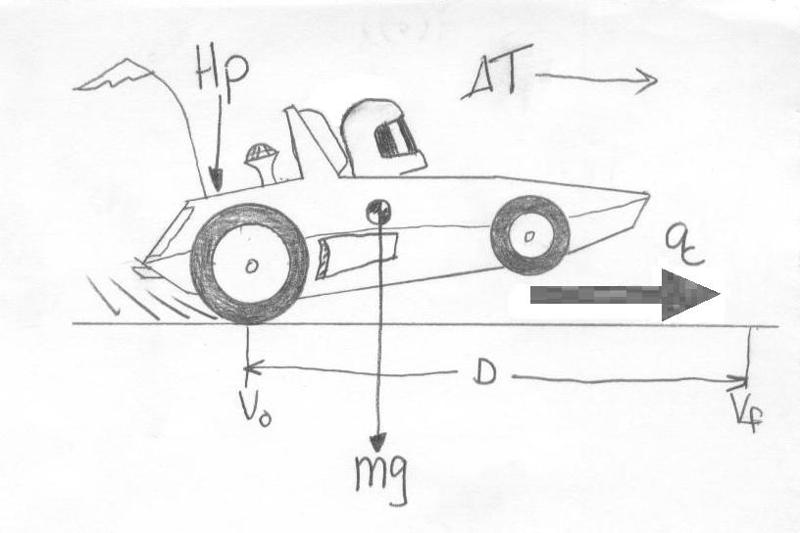 Hp
ΔT
a
D
V₀
V_f
mg